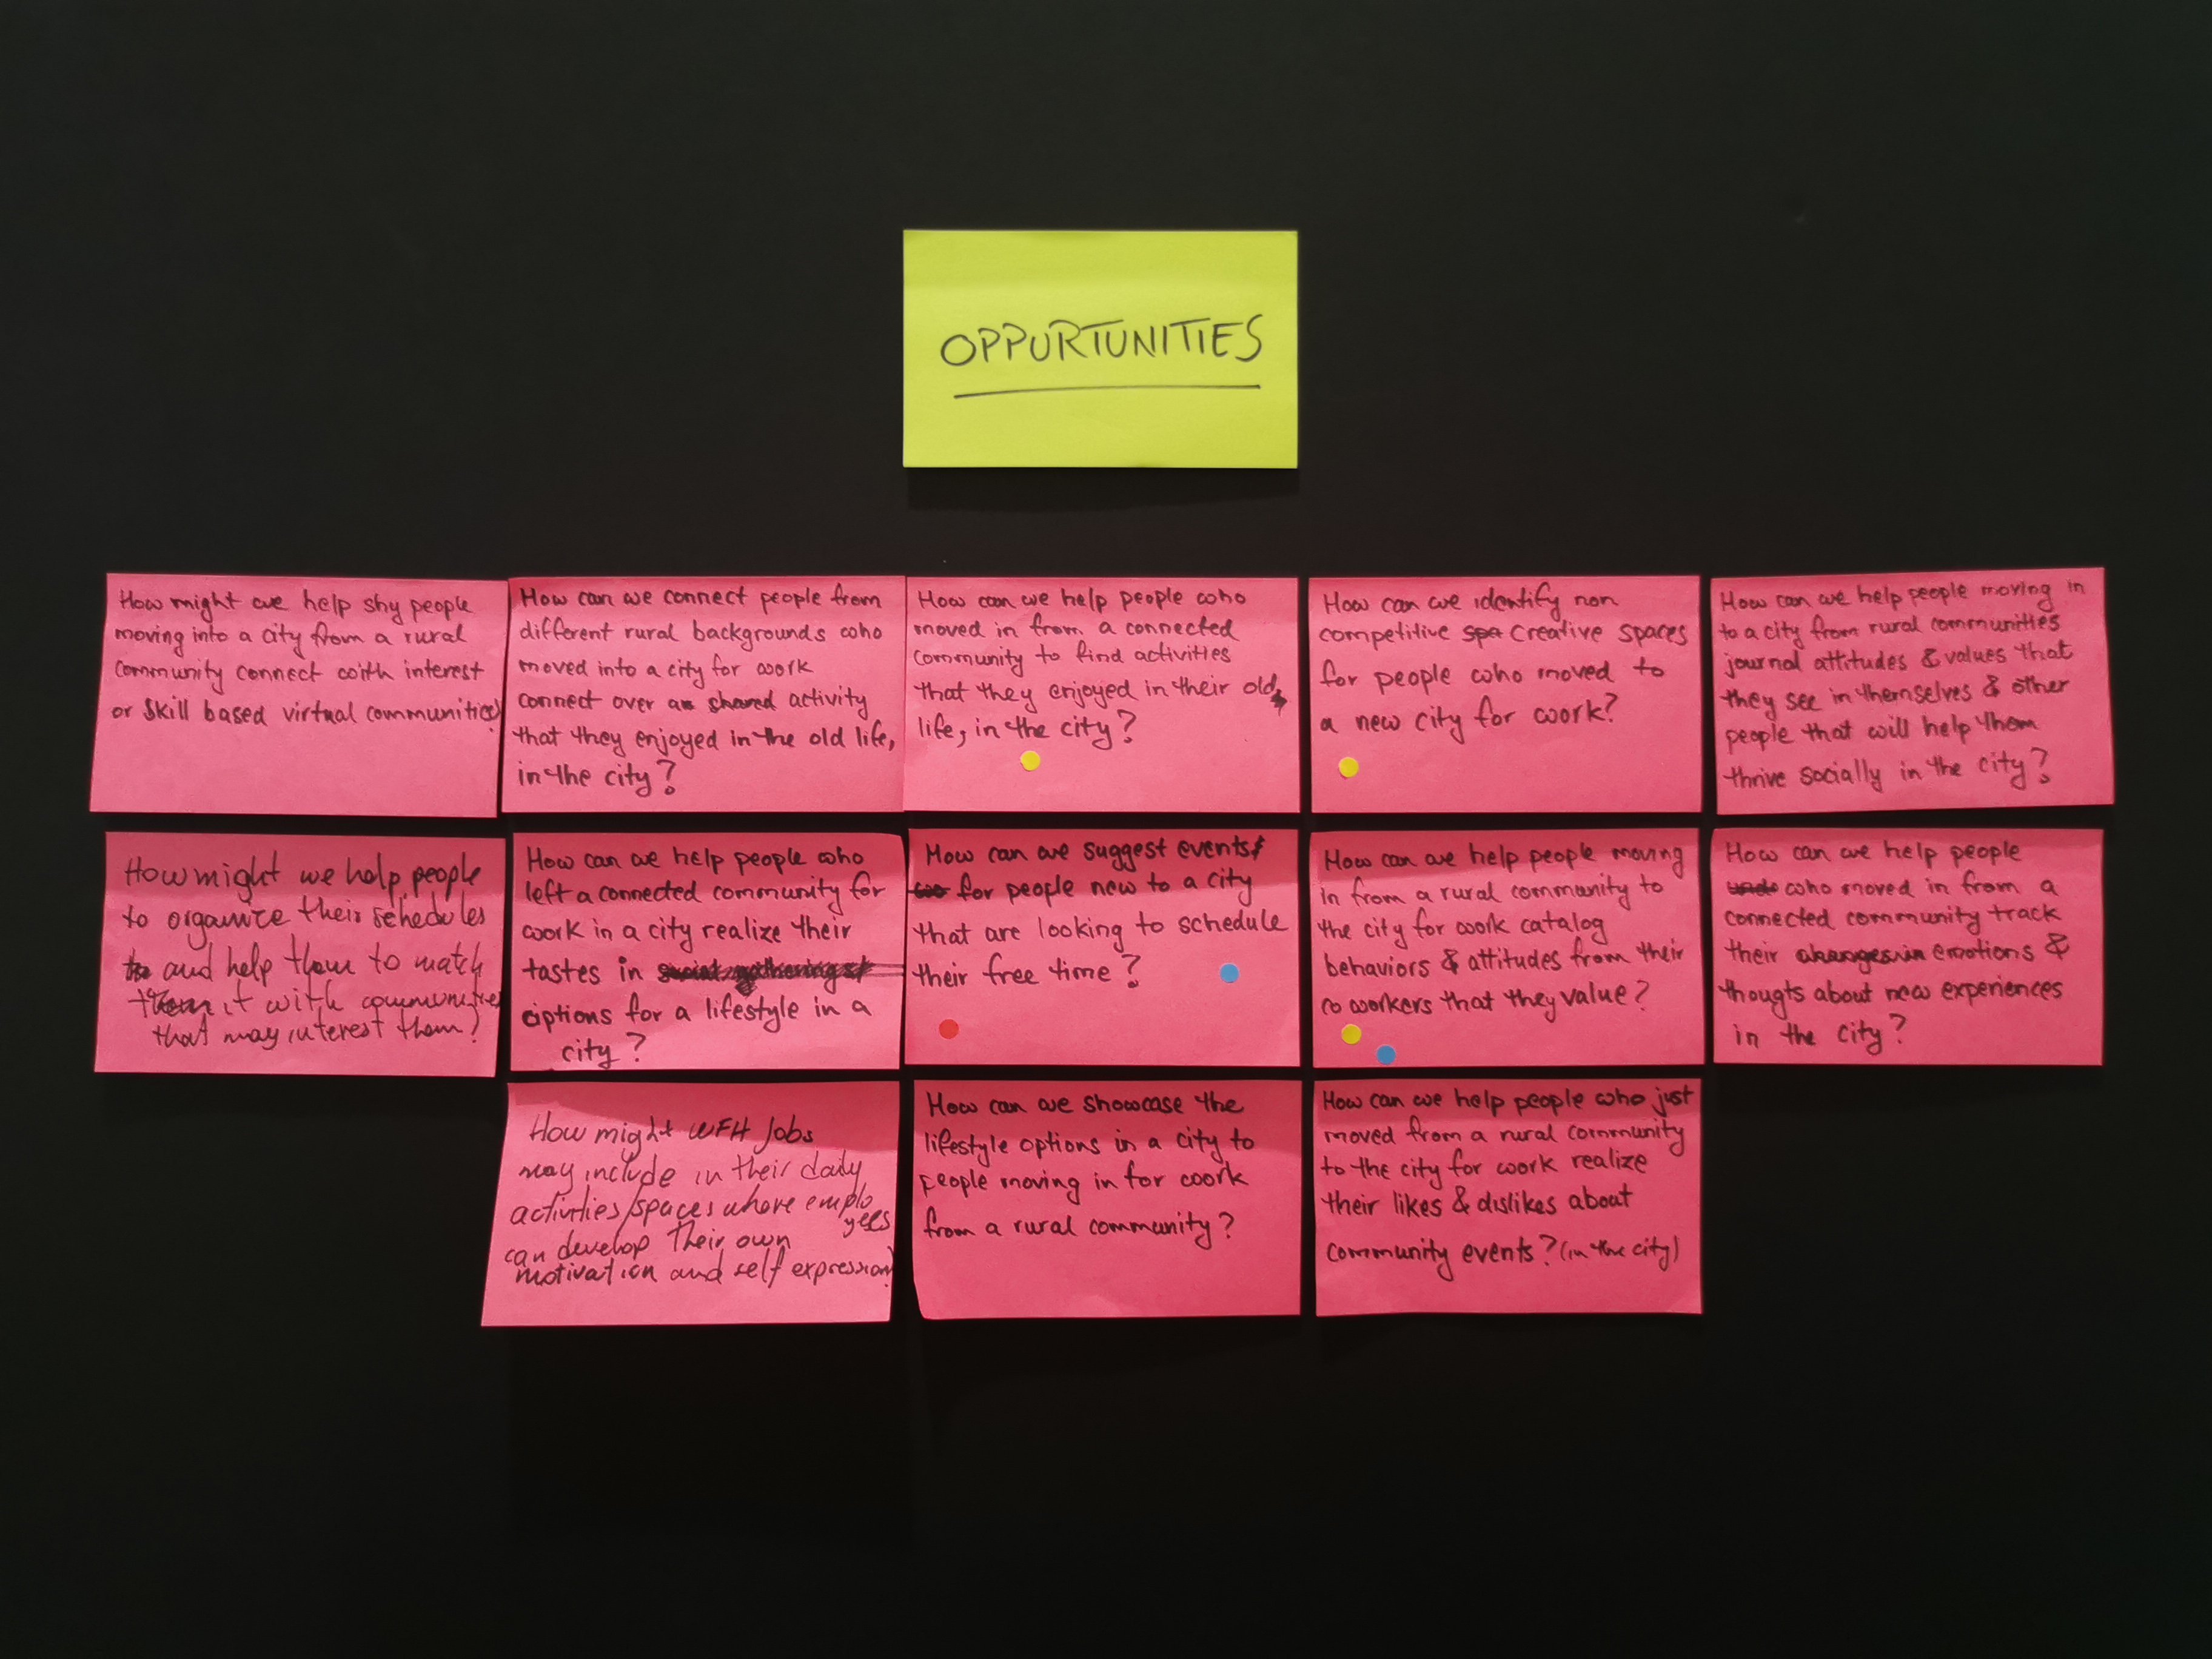 OPPURTUNITIES
How might we help shy people
moving into a city from a rural
community connect with interest
or skill based virtual communities?
How can we connect people from
different rural backgrounds who
moved into a city for work
connect over a shared activity
that they enjoyed in the old life,
in the city?
How can we help people who
moved in from a connected
community to find activities
that they enjoyed in their old
life, in the city?
How can we identify non
competitive creative spaces
for people who moved to
a new city for work?
How can we help people moving in
to a city from rural communities
journal attitudes & values that
they see in themselves & other
people that will help them
thrive socially in the city?
How might we help people
to organize their schedules
and help them to match
it with communities
that may interest them?
How can we help people who
left a connected community for
work in a city realize their
tastes in
options for a lifestyle in a
city?
How can we suggest events
for people new to a city
that are looking to schedule
their free time?
How can we help people moving
in from a rural community to
the city for work catalog
behaviors & attitudes from their
co workers that they value?
How can we help people
who moved in from a
connected community track
their emotions &
thougts about new experiences
in the city?
How might WFH Jobs
may include in their daily
activities/spaces where emplo
yees
can develop their own
motivation and self expression?
How can we showcase the
lifestyle options in a city to
people moving in for work
from a rural community?
How can we help people who just
moved from a rural community
to the city for work realize
their likes & dislikes about
community events? (in the city)